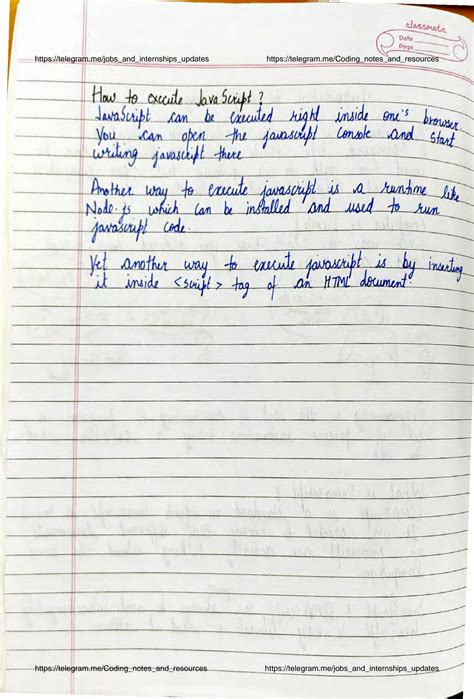 classmate
Date
Page
https://telegram.me/jobs_and_internships_updates https://telegram.me/Coding_notes_and_resources
How to excute JavaScript?
JavaScript can be executed right inside one's browser
You can open the javascript console and start
writing javascript there
Another way to execute javascript is a runtime like
Node.js which can be installed and used to run
javascript code.
Yet another way to execute javascript is by inserting
it inside <script> tag of an HTML document.
https://telegram.me/Coding_notes_and_resources https://telegram.me/jobs_and_internships_updates